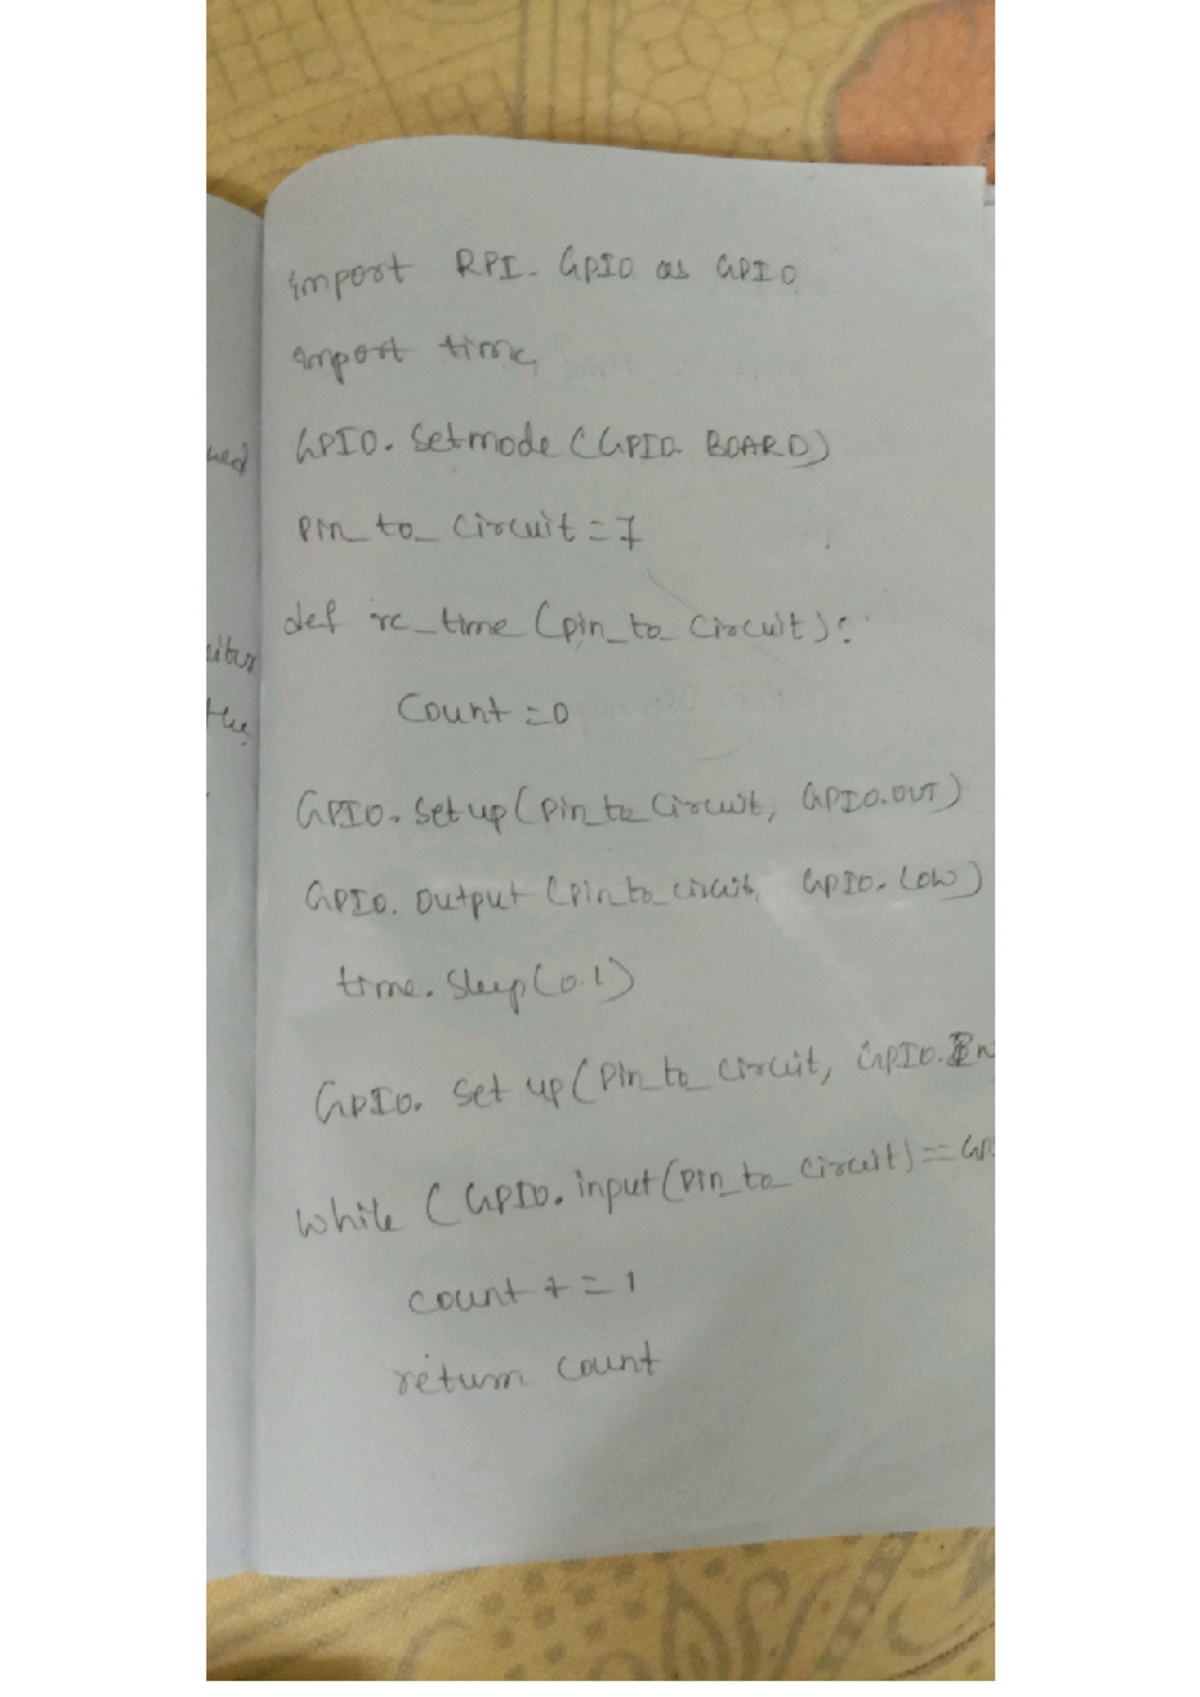 ned
citor
the
import RPI. GPIO as GPIO
import time
GPIO. Setmode (GPIO. BOARD)
Pin_to_ Circuit = 7
def rc_time (pin_to_ Circuit):
Count = 0
GPIO. Setup (Pin_to_ Circuit, GPIO.OUT)
GPIO. Output (Pin_to_circuit, GPIO. LOW)
time. Sleep (0.1)
GPIO. Set up (Pin_to_ circuit, GPIO. In
while ( GPIO. input (Pin_to_ Circuit) == GP
count += 1
return count